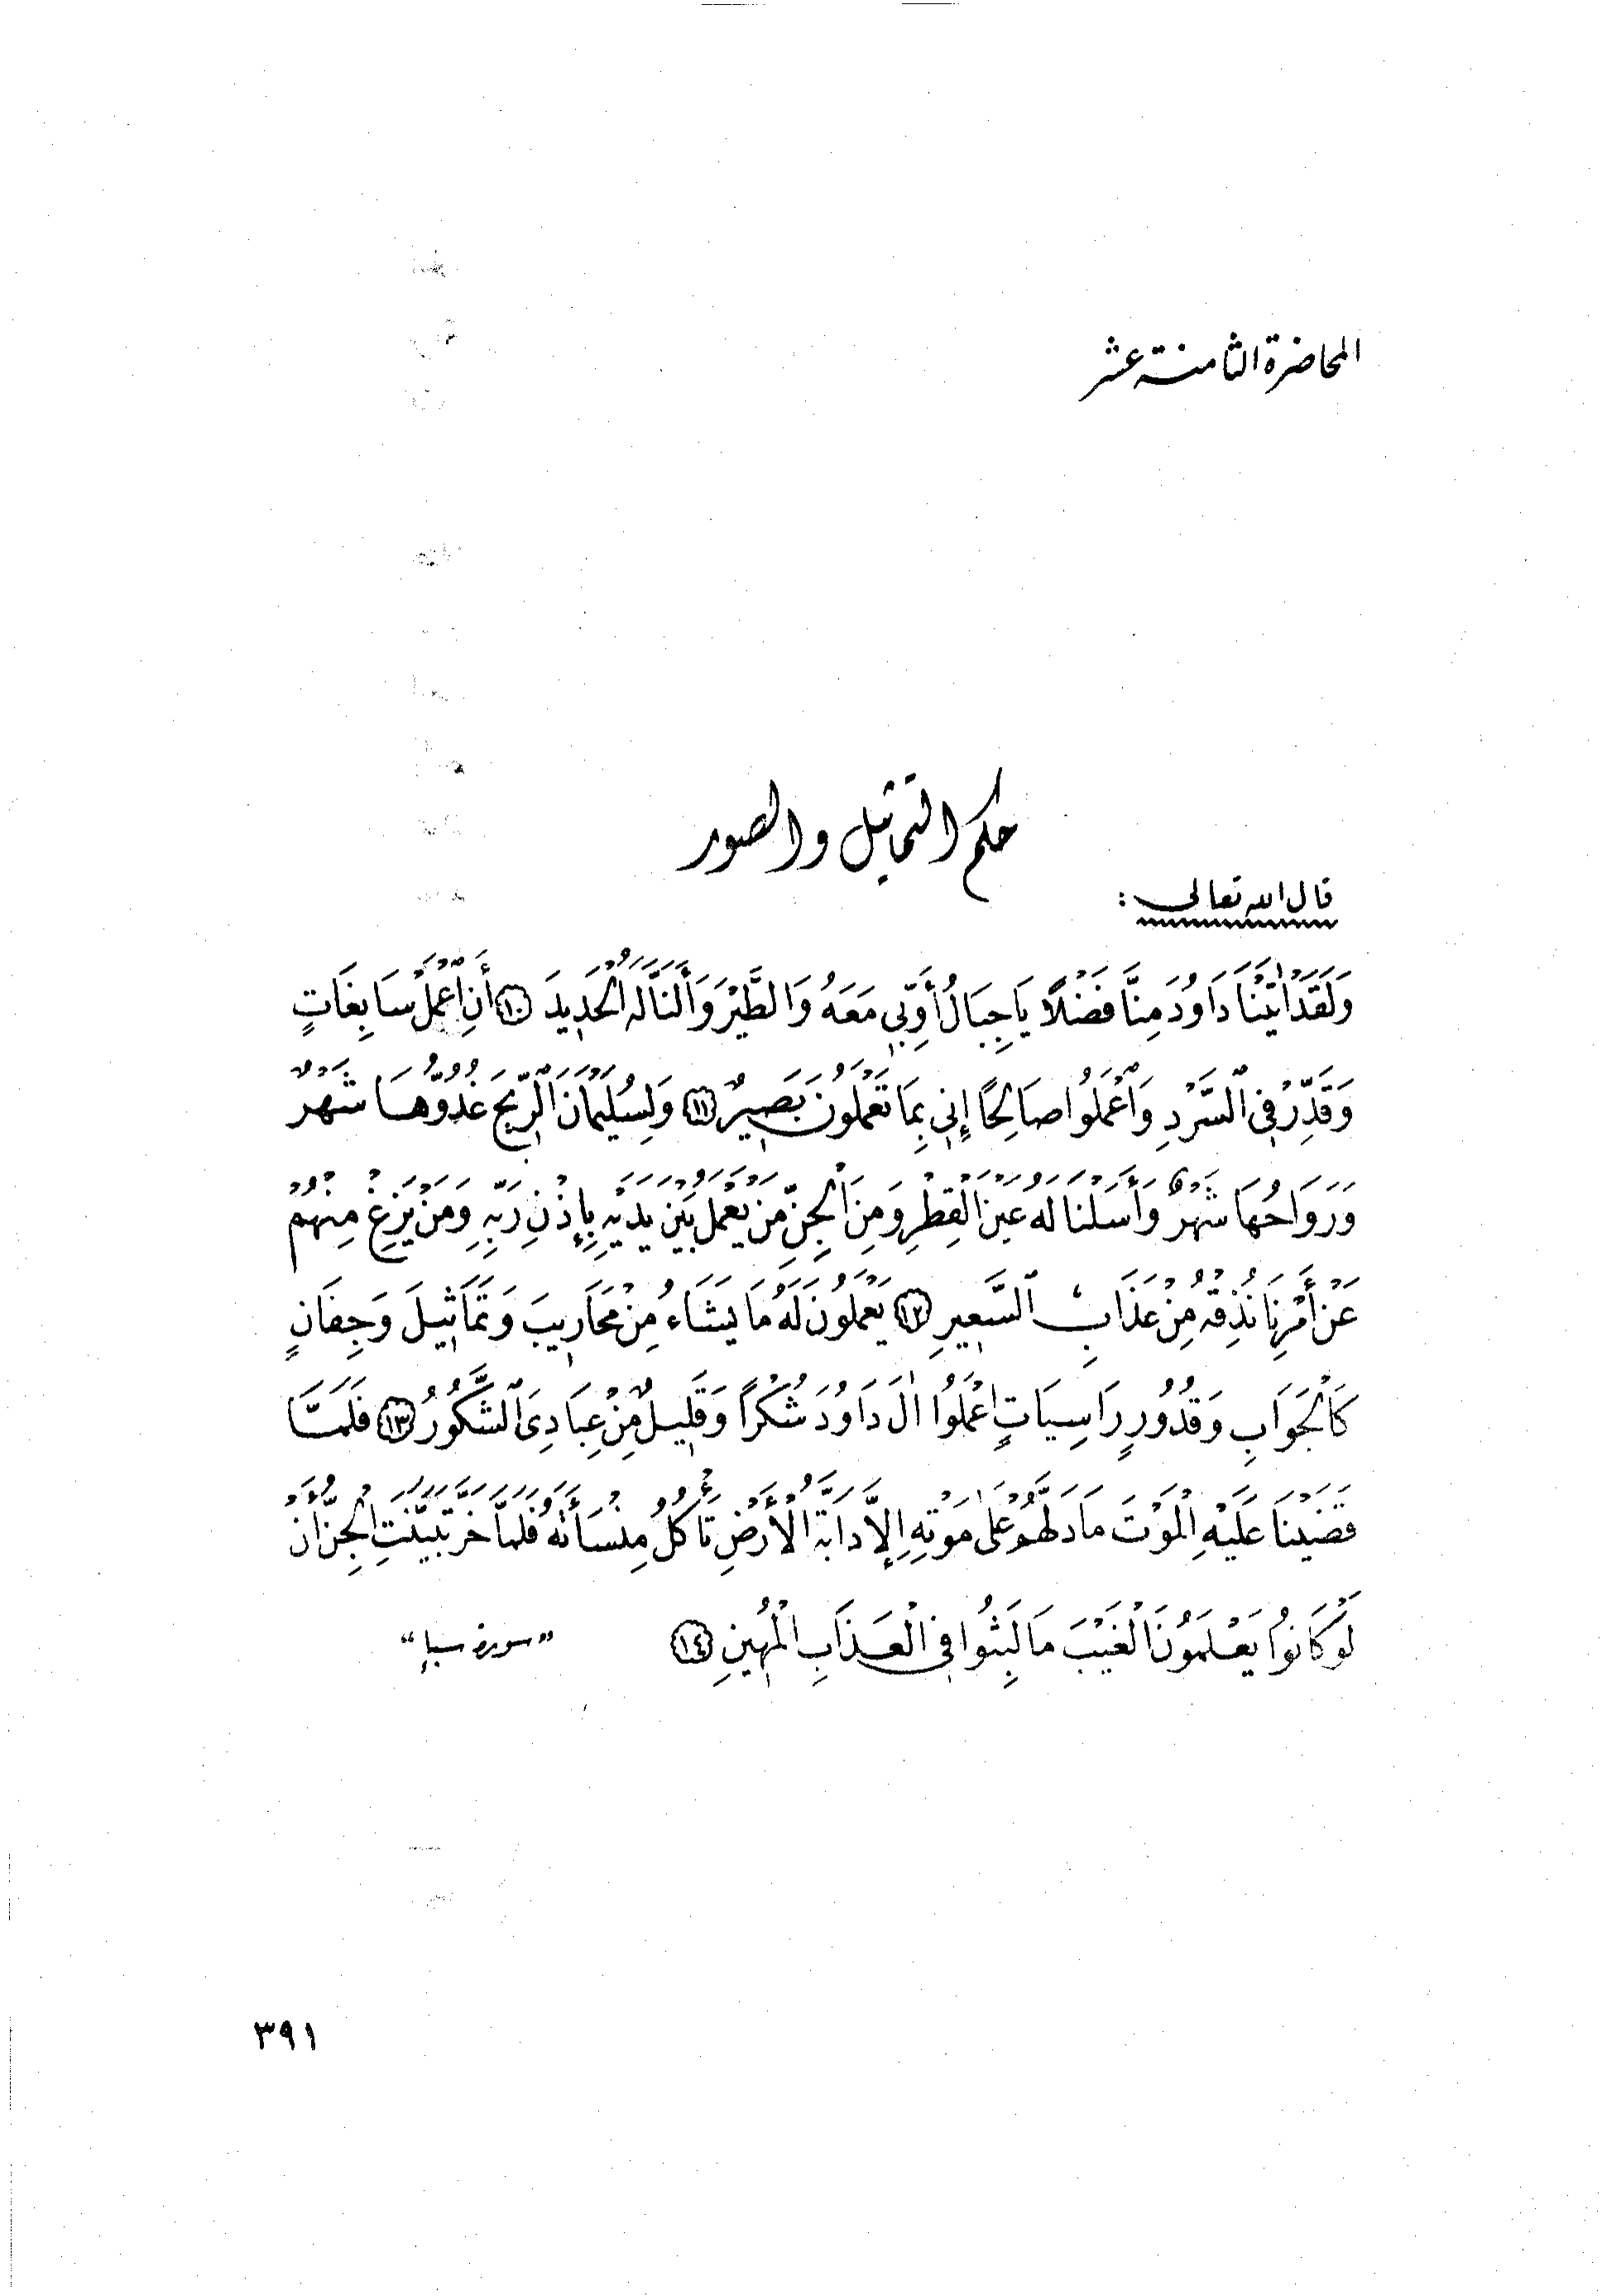 المحاضرة الثامنة عشر
حكم التماثيل والصور
قال الله تعالى :
وَلَقَدْ اٰتَيْنَا دَاوُدَ مِنَّا فَضْلًا يَا جِبَالُ أَوِّبِي مَعَهُ وَالطَّيْرَ وَأَلَنَّا لَهُ الْحَدِيدَ ١٠ أَنِ اعْمَلْ سَابِغَاتٍ
وَقَدِّرْ فِي السَّرْدِ وَاعْمَلُوا صَالِحًا إِنِّي بِمَا تَعْمَلُونَ بَصِيرٌ ١١ وَلِسُلَيْمَانَ الرِّيحَ غُدُوُّهَا شَهْرٌ
وَرَوَاحُهَا شَهْرٌ وَأَسَلْنَا لَهُ عَيْنَ الْقِطْرِ وَمِنَ الْجِنِّ مَنْ يَعْمَلُ بَيْنَ يَدَيْهِ بِإِذْنِ رَبِّهِ وَمَنْ يَزِغْ مِنْهُمْ
عَنْ أَمْرِنَا نُذِقْهُ مِنْ عَذَابِ السَّعِيرِ ١٢ يَعْمَلُونَ لَهُ مَا يَشَاءُ مِنْ مَحَارِيبَ وَتَمَاثِيلَ وَجِفَانٍ
كَالْجَوَابِ وَقُدُورٍ رَاسِيَاتٍ اعْمَلُوا اٰلَ دَاوُدَ شُكْرًا وَقَلِيلٌ مِنْ عِبَادِيَ الشَّكُورُ ١٣ فَلَمَّا
قَضَيْنَا عَلَيْهِ الْمَوْتَ مَا دَلَّهُمْ عَلٰى مَوْتِهِ إِلَّا دَابَّةُ الْأَرْضِ تَأْكُلُ مِنْسَأَتَهُ فَلَمَّا خَرَّ تَبَيَّنَتِ الْجِنُّ أَنْ
لَوْ كَانُوا يَعْلَمُونَ الْغَيْبَ مَا لَبِثُوا فِي الْعَذَابِ الْمُهِينِ ١٤ « سورة سبأ »
٣٩١